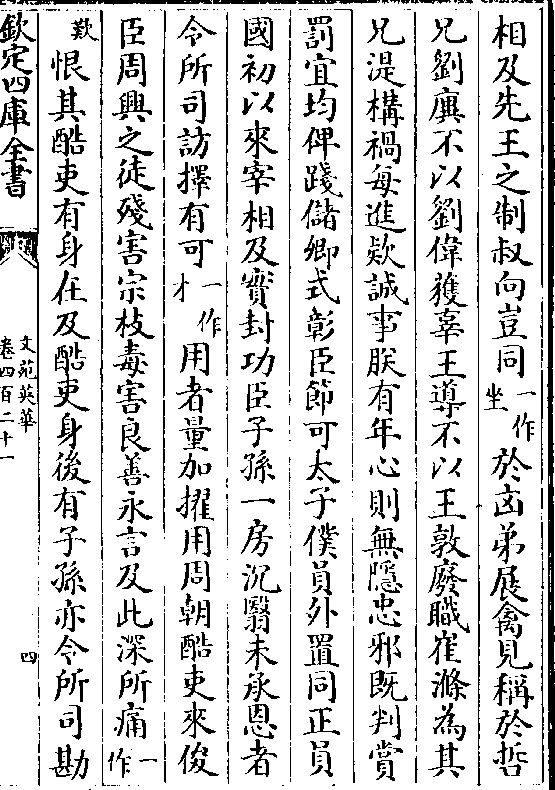 相及先王之制叔向豈同一作坐於凶弟展禽見稱於哲
兄劉廙不以劉偉獲辜王導不以王敦廢職崔滌為其
兄湜構禍每進欵誠事朕有年心則無隱忠邪既判賞
罰宜均俾踐儲卿式彰臣節可太子僕員外置同正員
國初以來宰相及實封功臣子孫一房沉翳未承恩者
令所司訪擇有可一作才用者量加擢用周朝酷吏來俊
臣周興之徒殘害宗枝毒害良善永言及此深所痛一作
歎恨其酷吏有身在及酷吏身後有子孫亦令所司勘
欽定四庫全書
文苑英華
卷四百二十一
四